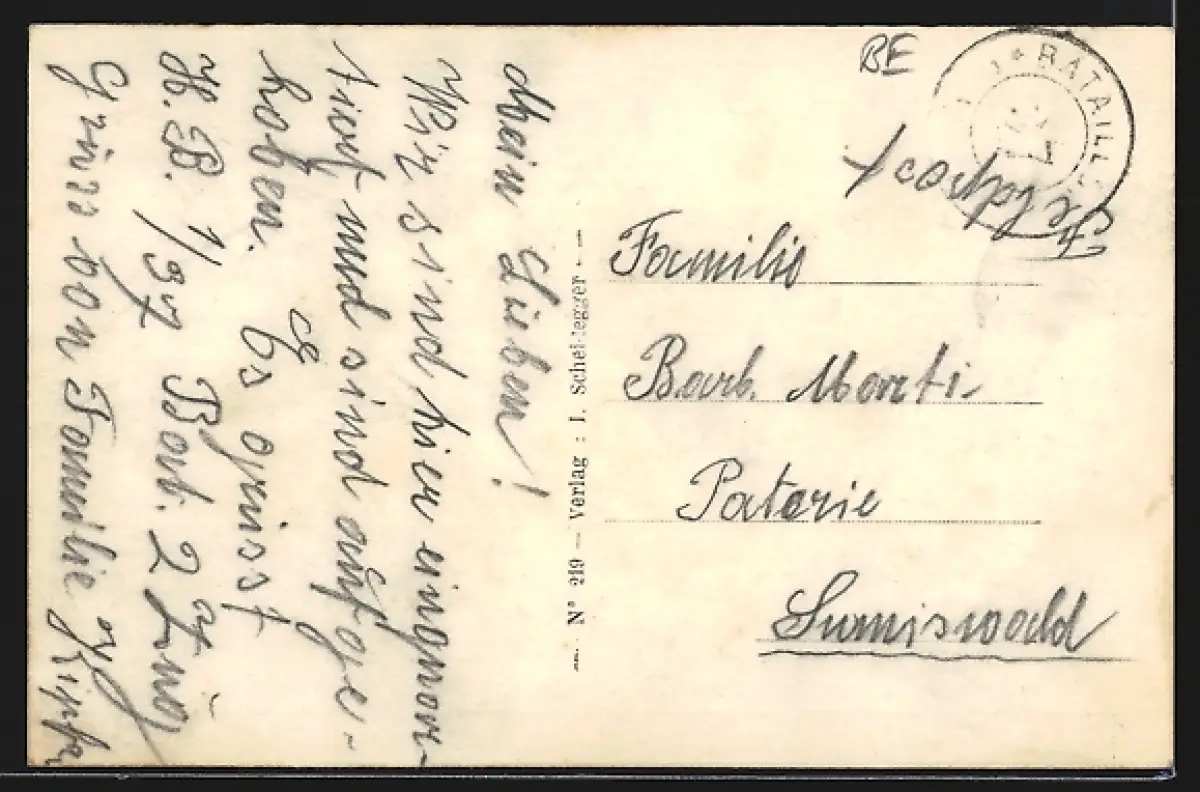 Mein Lieben!
Wir sind hier eingquar-
tiert und sind aufge-
hoben.
Es grüsst
H. B. 1/37 Bat. 2 Zug
Grüss von Familie
N° 219 — Verlag : I. Scheidegger
BE
BATAILL
Feldpost
Familie
Barb. Marti
Paterie
Sumiswald